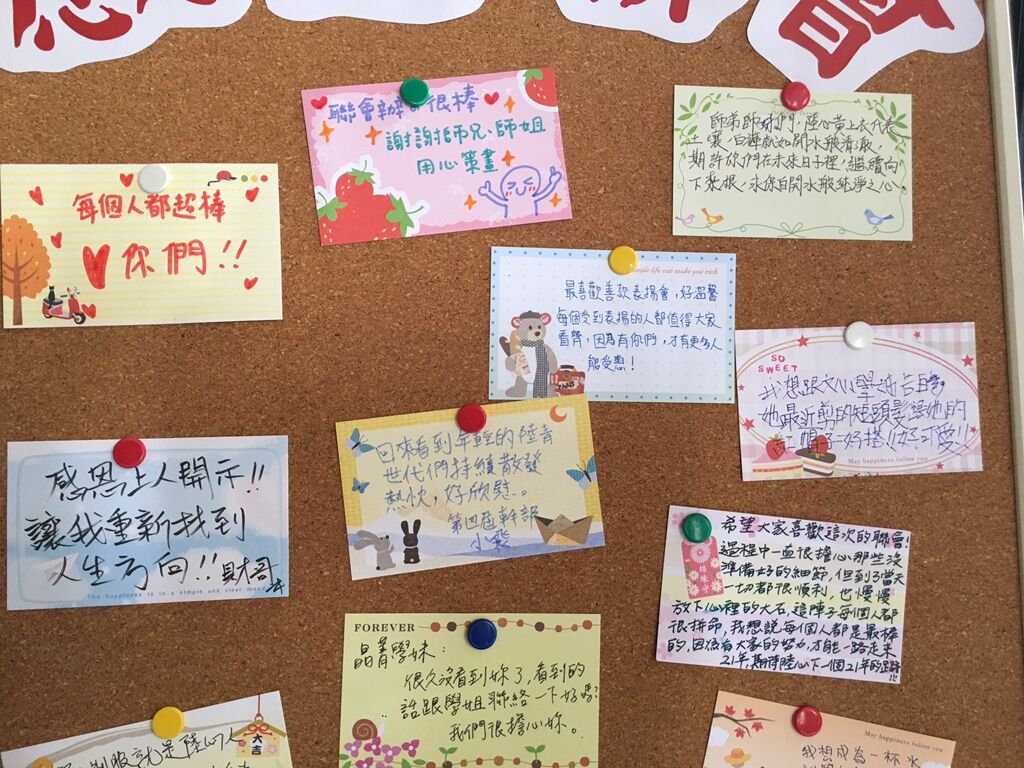 聯會辦 很棒
謝謝師兄、師姐
用心策畫
師弟師妹們,陸心黃上衣代表
土壤,白褲就如開水般清澈,
期許你們在未來日子裡,繼續向
下紮根,永保白開水般純淨之心。
每個人都超棒
你們!!
simple life can make you rich
最喜歡善款表揚會,好溫馨
每個受到表揚的人都值得大家
看齊,因為有你們,才有更多人
能受惠!
SO
SWEET
我想跟文心學
她最近剪的短頭髮跟她的
帽子好搭!好可愛!!
May happiness follow you
回來看到年輕的陸青
世代們持續散發
熱忱,好欣慰。
第四屆幹部
小飛
感恩上人開示!!
讓我重新找到
人生方向!!
The happiness is in a simple and clear mood
希望大家喜歡這次的聯會!
過程中一直很擔心那些沒
準備好的細節,但到了當天
一切都很順利,也慢慢
放下心裡的大石,這陣子每個人都
很拼命,我想說每個人都是最棒
的,因為有大家的努力,才能一路走來
21年,期待陸心下一個21年的
FOREVER
晶菁學妹:
很久沒看到妳了,看到的
話跟學姐聯絡一下好嗎?
我們很擔心妳。
制服就是陸心人
大吉
May happiness follow you
我想成為一杯水